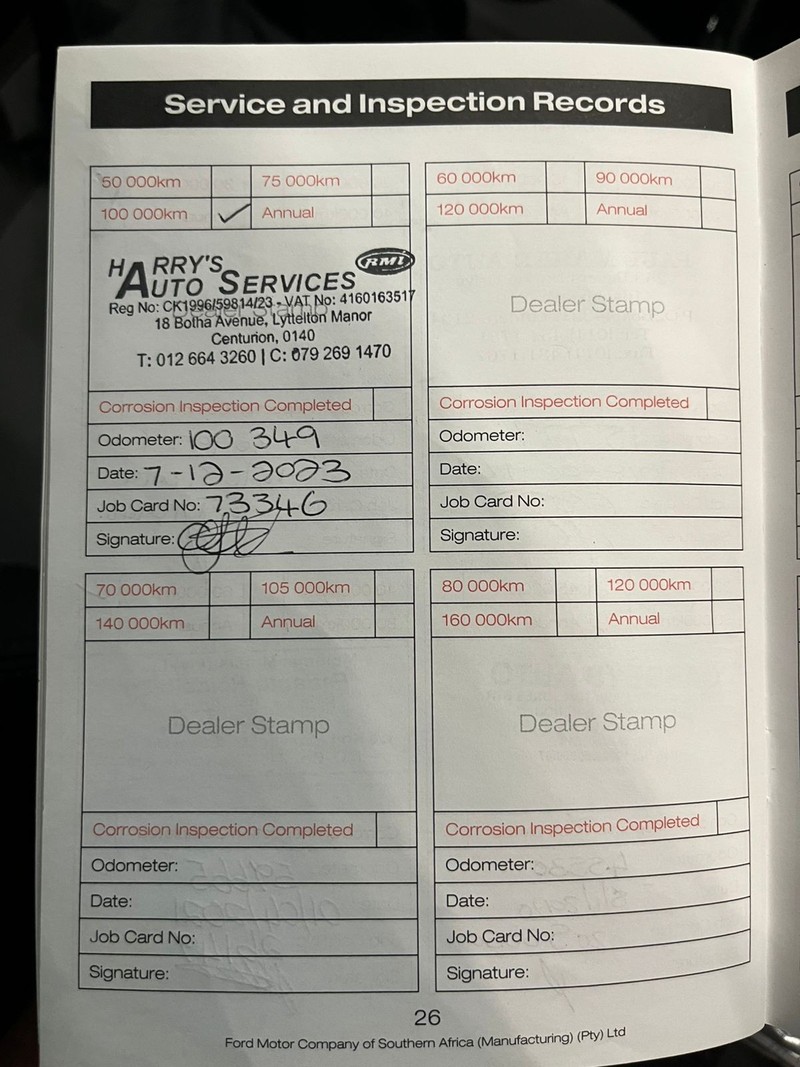 Service and Inspection Records
50 000km 75 000km
100 000km ✓ Annual
HARRY'S
AUTO SERVICES
RMI
Reg No: CK1996/59814/23 - VAT No: 4160163517
Dealer Stamp
18 Botha Avenue, Lyttelton Manor
Centurion, 0140
T: 012 664 3260 | C: 079 269 1470
Corrosion Inspection Completed
Odometer: 100 349
Date: 7-12-2023
Job Card No: 73346
Signature:
60 000km 90 000km
120 000km Annual
Dealer Stamp
Corrosion Inspection Completed
Odometer:
Date:
Job Card No:
Signature:
70 000km 105 000km
140 000km Annual
Dealer Stamp
Corrosion Inspection Completed
Odometer:
Date:
Job Card No:
Signature:
80 000km 120 000km
160 000km Annual
Dealer Stamp
Corrosion Inspection Completed
Odometer:
Date:
Job Card No:
Signature:
26
Ford Motor Company of Southern Africa (Manufacturing) (Pty) Ltd